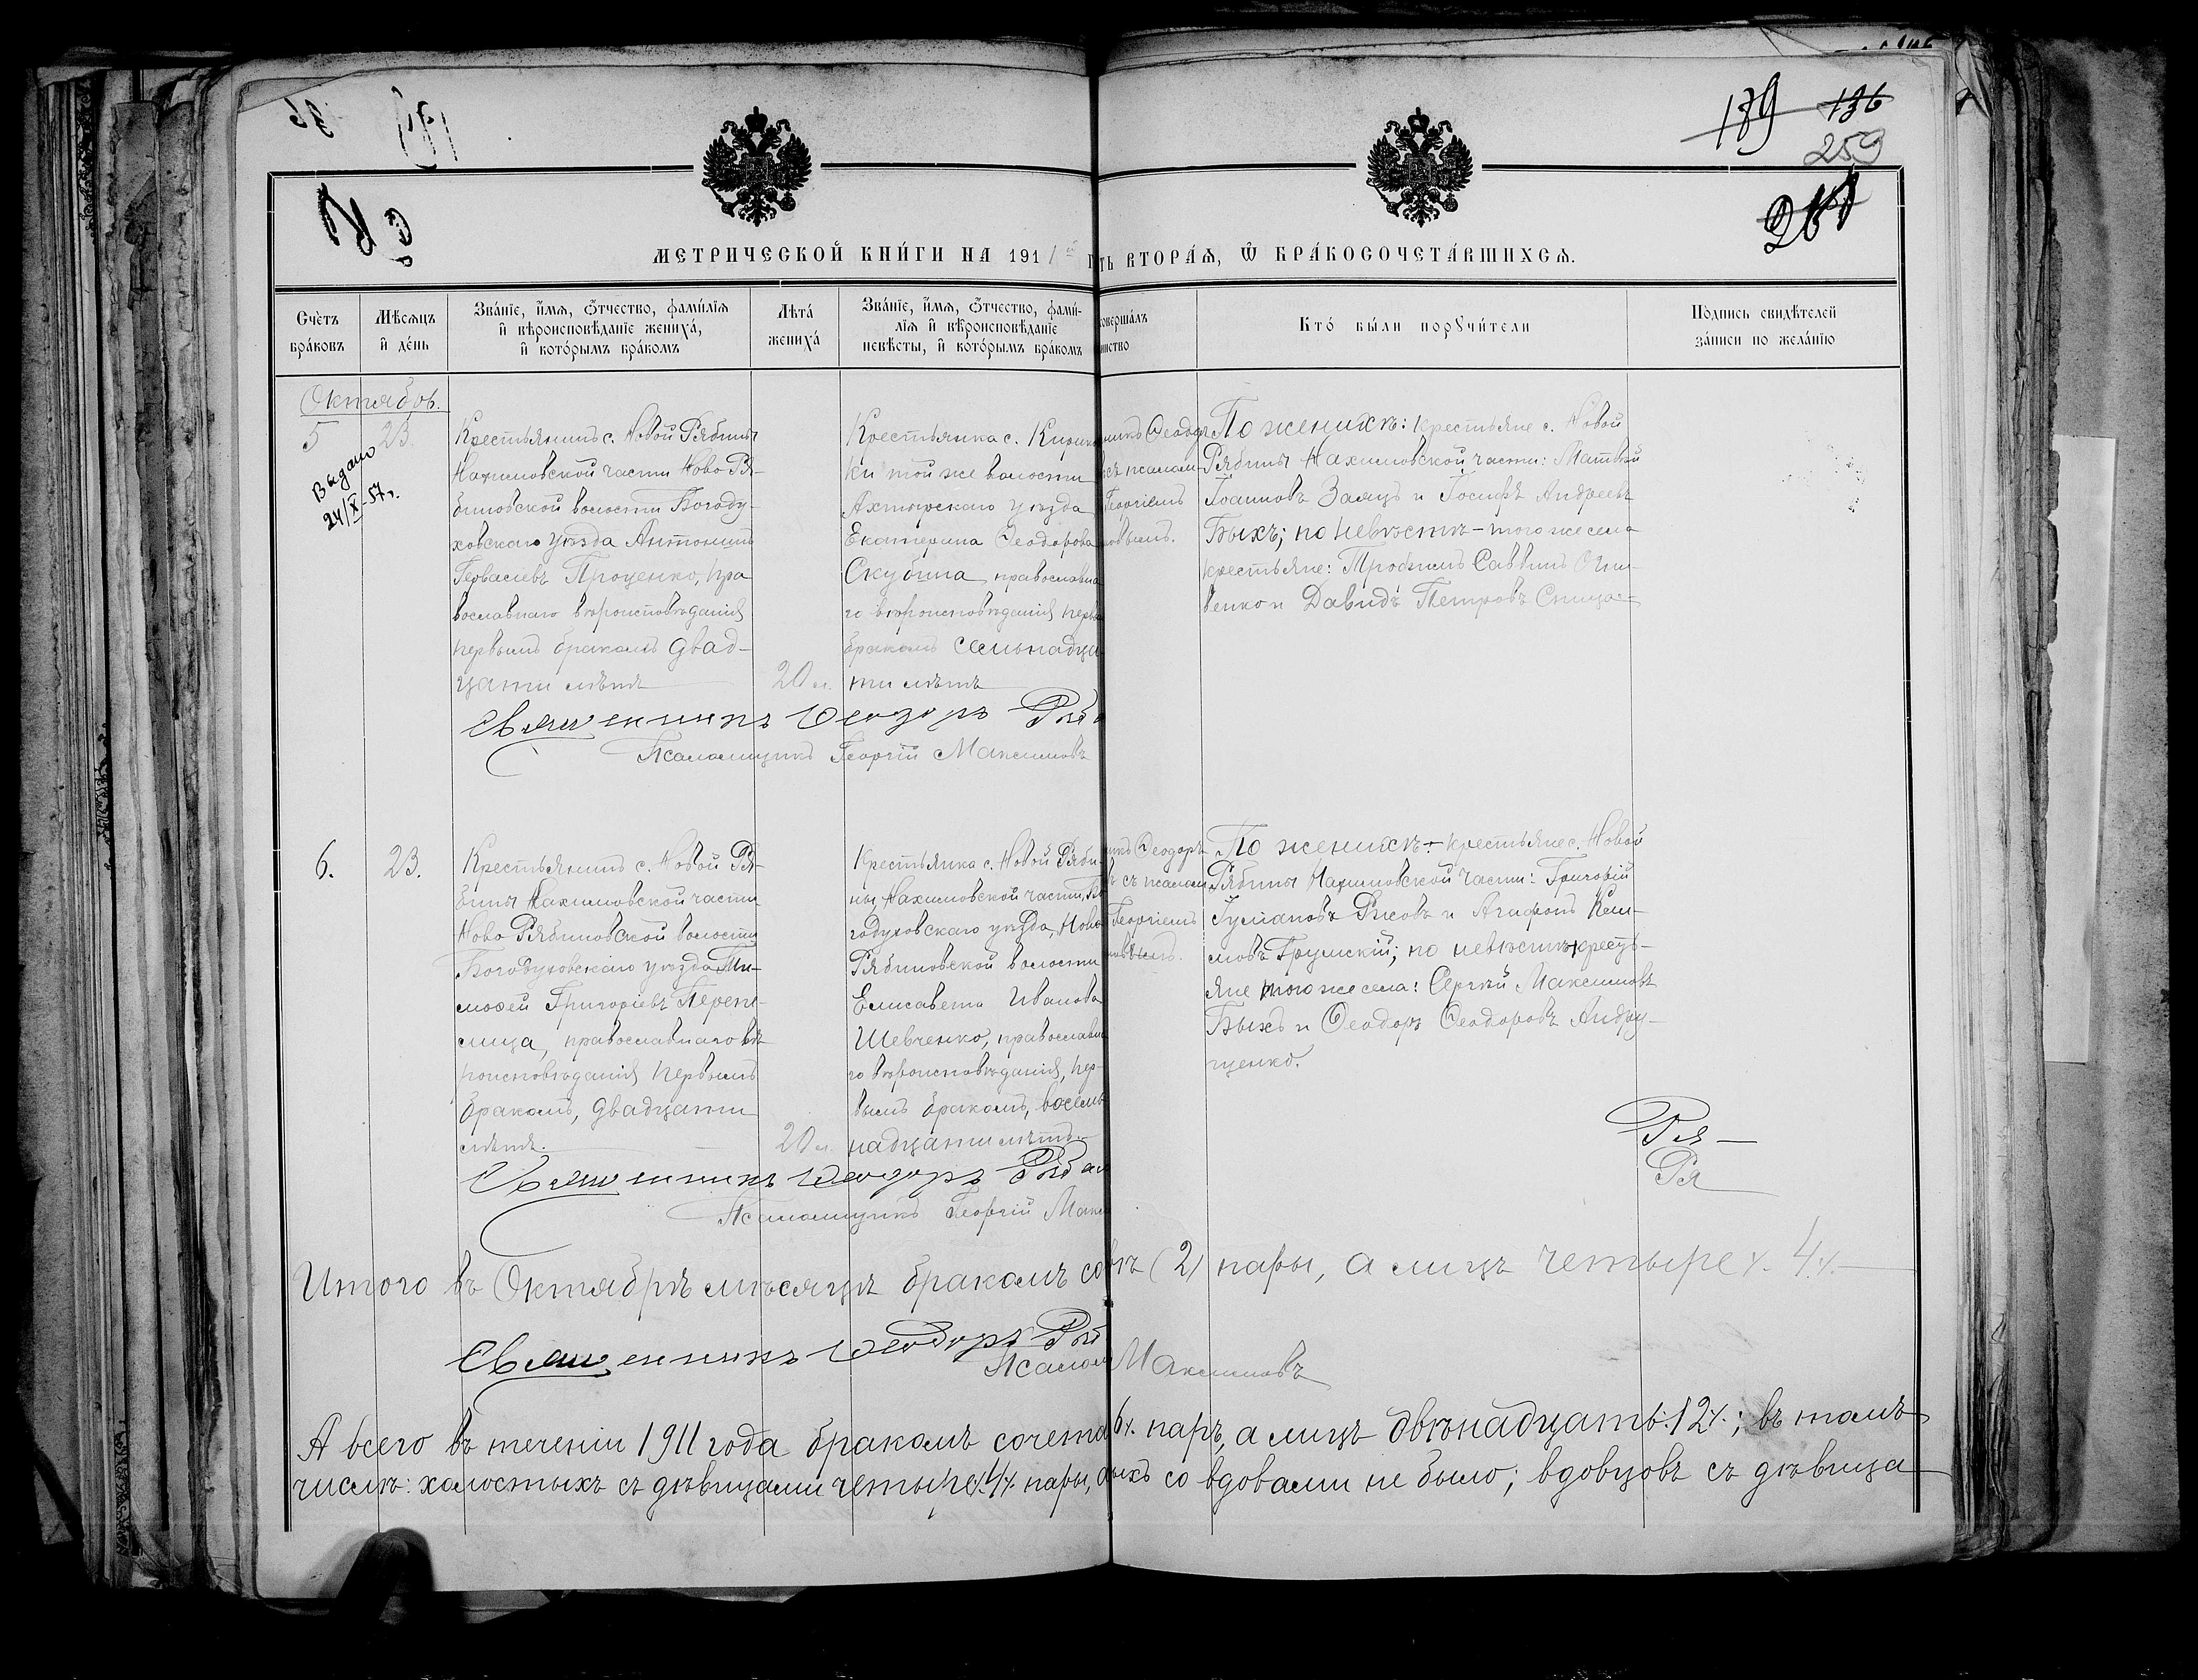 179 136
259
МЕТРИЧЕСКОЙ КНИ́ГИ НА 1911й
ТЬ ВТОРА́Ѧ, Ѿ БРА́КОСОЧЕТА́ВШИХСѦ.
Счѐтъ бра́ковъ
Мѣ́сѧцъ и҆ де́нь
Зва́нїе, и҆́мѧ, ѻ҆́тчество, фами́лїѧ
и҆ вѣроисповѣ́данїе жениха́,
и҆ кото́рымъ бра́комъ
Лѣ́та жениха́
Зва́нїе, и҆́мѧ, ѻ҆́тчество, фами́-
лїѧ и҆ вѣроисповѣ́данїе
невѣ́сты, и҆ кото́рымъ бра́комъ
соверша́лъ
инство
Кто́ бы́ли порꙋчи́тели
По́дпись свидѣ́телей
за́писи по жела́нїю
Октябрь.
5
23.
Выдано
24/X-57г.
Крестьянинъ с. Новой Рябины
Нахимовской части Ново-Ря-
биновской волости Богоду-
ховскаго уѣзда Антонинъ
Гервасіевъ Проценко, пра
вославнаго вѣроисповѣданія
первымъ бракомъ двад-
цати лѣтъ
20 л.
Крестьянка с. Кирик
ки той же волости
Ахтырскаго уѣзда
Екатерина Ѳеодорова
Скубина православна
го вѣроисповѣданія первы
бракомъ семьнадца
ти лѣтъ
никъ Ѳеодоръ
съ псалом-
Георгіемъ
новымъ.
По женихѣ: крестьяне с. Новой
Рябины Нахимовской части: Матвѣй
Іоанновъ Заяцъ и Іосифъ Андреевъ
Быхъ; по невѣстѣ - того же села
крестьяне: Трофимъ Саввинъ
венко и Давидъ Петровъ
Священникъ Ѳеодоръ
Псаломщикъ Георгій Максимовъ
6.
23.
Крестьянинъ с. Новой Ря-
бины Нахимовской части
Ново-Рябиновской волости
Богодуховскаго уѣзда Ти-
моѳей Григоріевъ Переп-
лица, православнаго вѣ-
роисповѣданія первымъ
бракомъ, двадцати
лѣтъ.
20 л.
Крестьянка с. Новой Ряби-
ны, Нахимовской части, Бо
годуховскаго уѣзда, Ново
Рябиновской волости
Елисавета Иванова
Шевченко, православна
го вѣроисповѣданія, пер-
вымъ бракомъ, восемь
надцати лѣтъ.
никъ Ѳеодоръ
съ псалом
Георгіемъ
новымъ.
По женихѣ - крестьяне с. Новой
Рябины Нахимовской части: Григорій
Рысовъ и Агафонъ Кли-
мовъ Грумскій; по невѣстѣ кресть-
яне того же села: Сергѣй Максимовъ
Быхъ и Ѳеодоръ Ѳеодоровъ Андру-
щенко.
Ря-
Ря
Священникъ Ѳеодоръ
Псаломщикъ Георгій Макси
Итого въ Октябрѣ мѣсяцѣ бракомъ со (2) пары, а лицъ четыре ч. 4 ч.
Священникъ Ѳеодоръ
Псалом Максимовъ
А всего въ теченіи 1911 года бракомъ сочета 6 ч. паръ, а лицъ двѣнадцать. 12 ч.; въ томъ
числѣ: холостыхъ съ дѣвицами четыре ч. 4 ч. пары, ыхъ со вдовами не было; вдовцовъ съ дѣвица